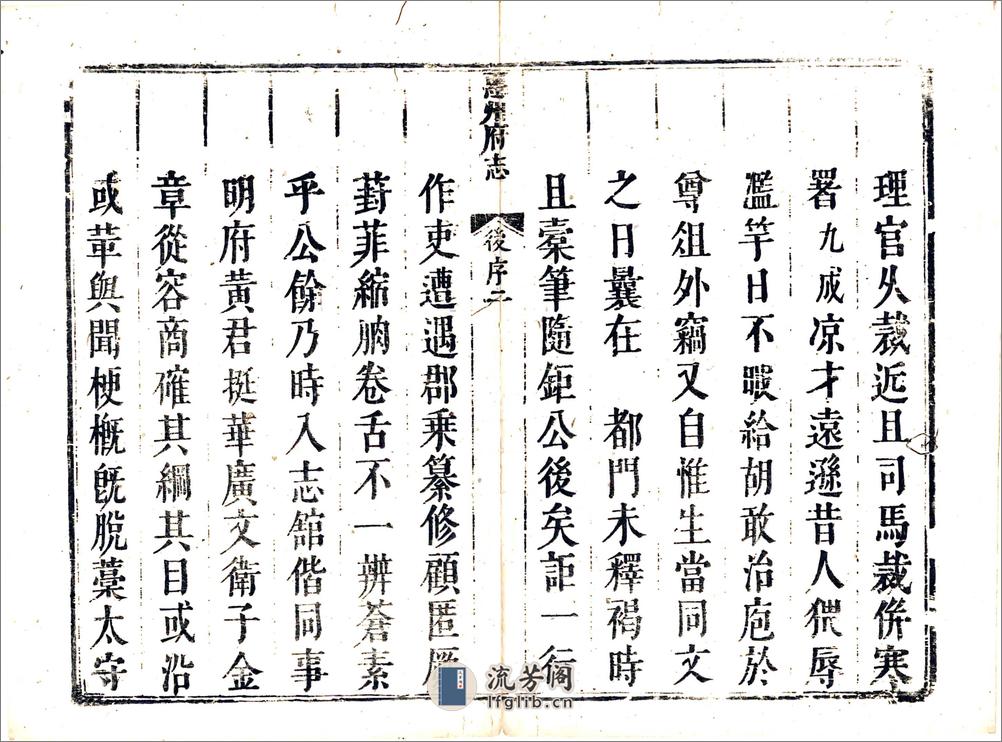 理官久裁近且司馬裁併寒
署九成凉才遠遜昔人猥辱
濫竽日不暇給胡敢治庖於
尊俎外竊又自惟生當同文
之日曩在 都門未釋褐時
且槖筆隨鉅公後矣詎一行
惠州府志
後序二
作吏遭遇郡乗纂修顧匿厥
葑菲縮朒卷舌不一辨蒼素
乎公餘乃時入志舘偕同事
明府黄君挺華廣文衛子金
章從容商確其綱其目或沿
或革與聞梗槪旣脫藁太守
流芳阁
lfglib.cn